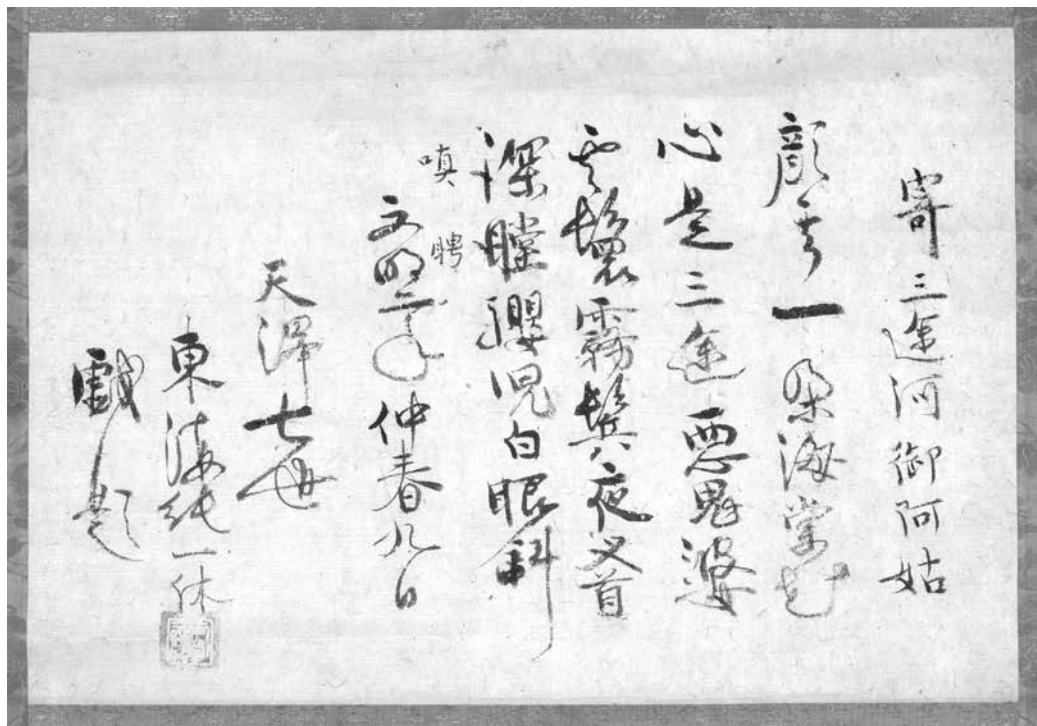 寄三途河御阿姑
顔一朶海棠花
心是三途悪鬼婆
雲鬟霧鬢夜叉首
深瞠嬰児白眼斜
嗔 聘
文明二年仲春九日
天澤七世
東海純一休
戯題